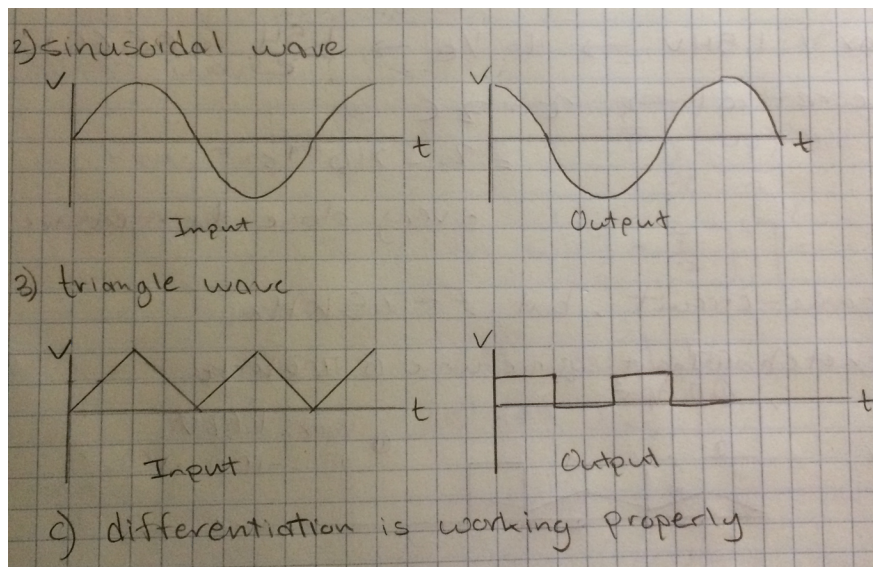 2) sinusoidal wave
V
t
Input
V
t
Output
3) triangle wave
V
t
Input
V
t
Output
c) differentiation is working properly